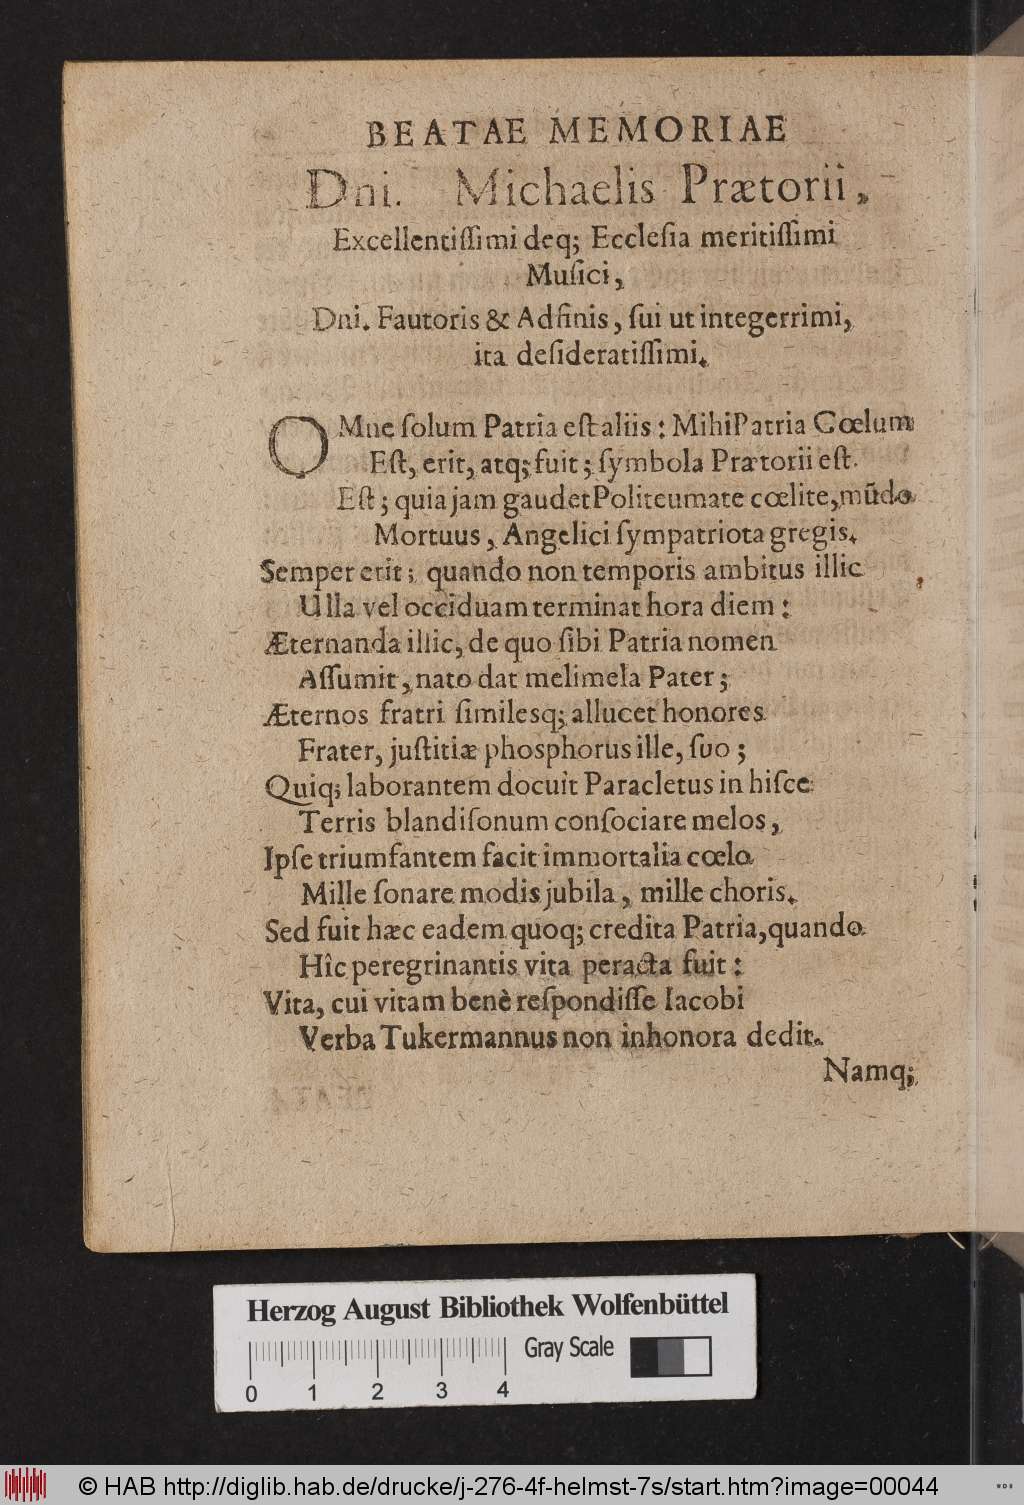 BEATAE MEMORIAE
Dni. Michaelis Prætorii,
Excellentiſſimi deq; Eccleſia meritiſſimi
Muſici,
Dni. Fautoris & Adfinis, ſui ut integerrimi,
ita deſideratiſſimi.
OMne ſolum Patria eſt aliis: Mihi Patria Cœlum
Eſt, erit, atq; fuit; ſymbola Prætorii eſt.
Eſt; quia jam gaudet Politeumate cœlite, mūdo
Mortuus, Angelici ſympatriota gregis.
Semper erit; quando non temporis ambitus illic
Ulla vel occiduam terminat hora diem:
Æternanda illic, de quo ſibi Patria nomen
Aſſumit, nato dat melimela Pater;
Æternos fratri ſimilesq; allucet honores
Frater, juſtitiæ phosphorus ille, ſuo;
Quiq; laborantem docuit Paracletus in hiſce
Terris blandiſonum conſociare melos,
Ipſe triumfantem facit immortalia cœlo
Mille ſonare modis jubila, mille choris.
Sed fuit hæc eadem quoq; credita Patria, quando
Hîc peregrinantis vita peracta fuit:
Vita, cui vitam benè reſpondiſſe Iacobi
Verba Tukermannus non inhonora dedit.
Namq;
Herzog August Bibliothek Wolfenbüttel
Gray Scale
0 1 2 3 4
© HAB http://diglib.hab.de/drucke/j-276-4f-helmst-7s/start.htm?image=00044